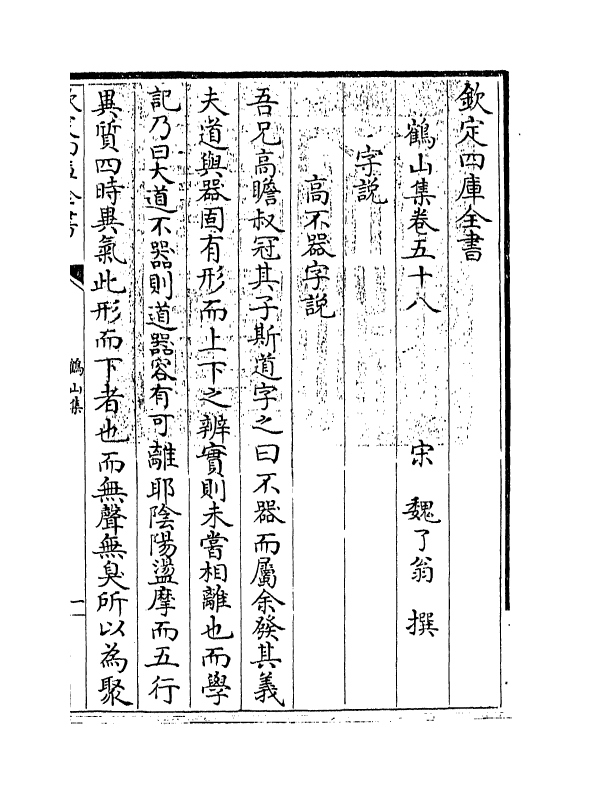 欽定四庫全書
鶴山集卷五十八
宋 魏了翁 撰
字說
高不器字說
吾兄高瞻叔冠其子斯道字之曰不器而屬余發其義
夫道與器固有形而上下之辨實則未嘗相離也而學
記乃曰大道不器則道器容有可離耶陰陽盪摩而五行
異質四時異氣此形而下者也而無聲無臭所以為聚
欽定四庫全書
鶴山集
一